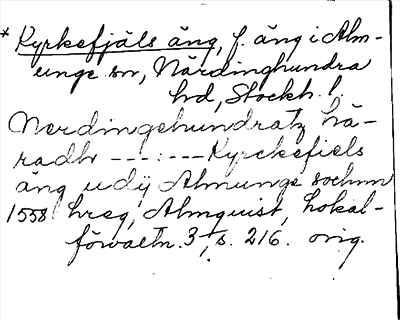 * Kyrkefjäls äng, f. äng i Alm-
unge sn, Närdinghundra
hd, Stockh. l.
Nerdingehundratz hä-
radh ---:--- Kyrckefiels
äng udÿ Almunge sochnn
1558 hreg, Almquist, Lokal-
förvaltn. 3, s. 216. orig.